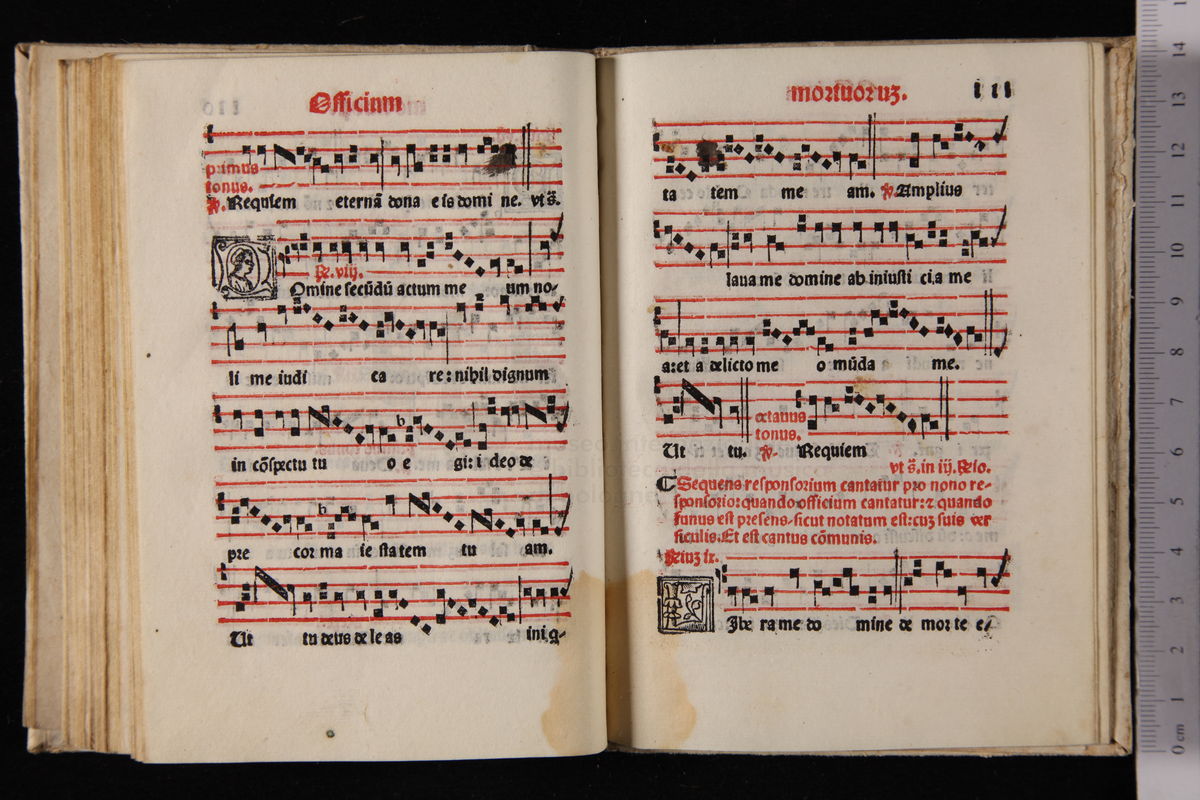 Officium
primus
tonus.
℣. Requiem eternã dona eis domi ne. vt s̃.
℟. viij.
Omine secũdũ actum me um no-
li me iudi ca re: nihil dignum
in cõspectu tu o e gi: i deo de
pre cor ma ie sta tem tu am.
Ut tu deus de le as iniq-
mortuoruʒ. 111
ta tem me am. ℣. Amplius
laua me domine ab iniusti cia me
a: et a delicto me o mũda me.
Ut tu. ℣. Requiem
octauus
tonus.
vt s̃. in iij. ℟io.
Sequens responsorium cantatur pro nono re-
sponsorio: quando officium cantatur: ⁊ quando
funus est presens, sicut notatum est: cuʒ suis ver
siculis. Et est cantus cõmunis.
ix.
Ibe ra me do mine de mor te e/
0 cm 1 2 3 4 5 6 7 8 9 10 11 12 13 14